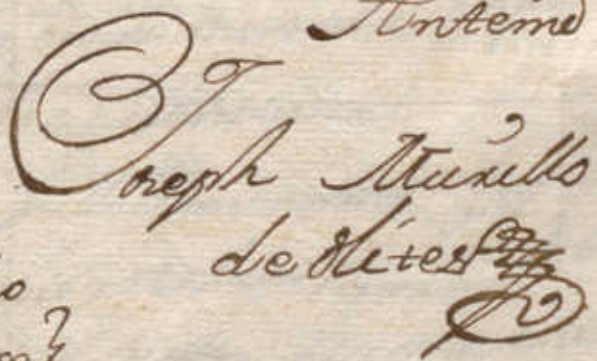 Ante mi
Joseph Murillo
de Olites